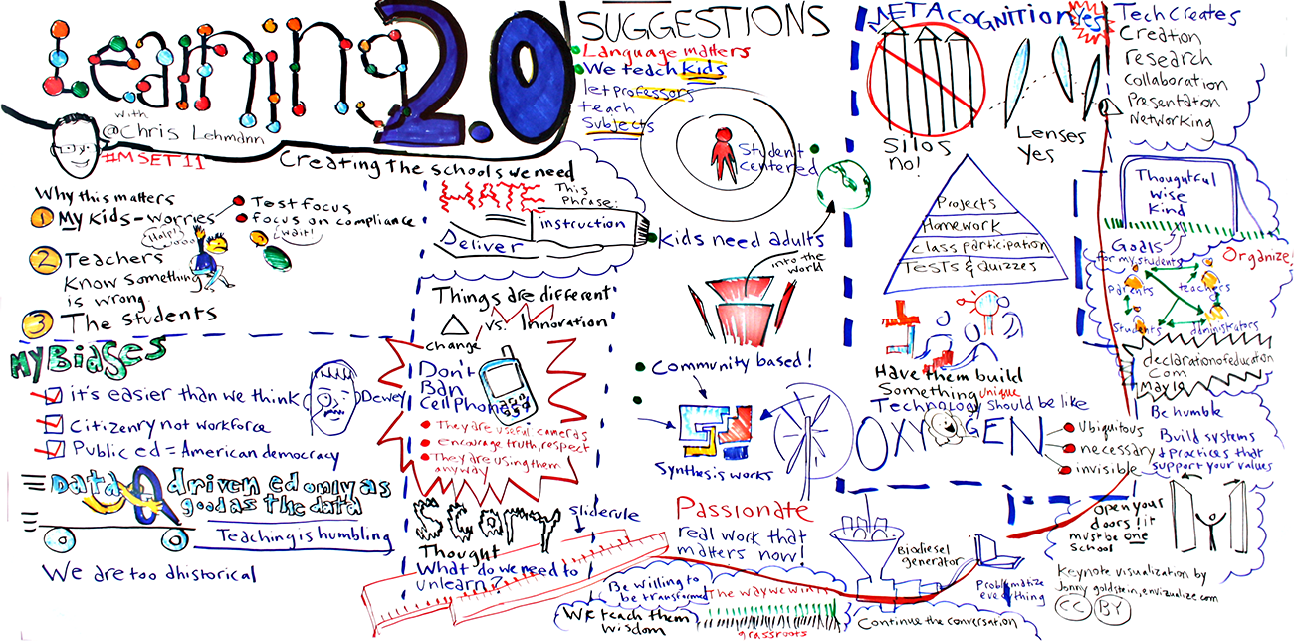 Learning 2.0
with
@Chris Lehmann
#IMSET11
Creating the schools we need
Why this matters
1 My Kids - worries
Test focus
focus on compliance
Halp!
Wait!
2 Teachers
Know something
is wrong.
3 The Students
My Biases
it's easier than we think
Dewey
Citizenry not workforce
Public ed = American democracy
Data driven ed only as
good as the data
Teaching is humbling
We are too ahistorical
HATE
This
Phrase:
Deliver
instruction
Things are different
change
vs. Innovation
Don't
Ban
Cell Phones
They are useful cameras
encourage truth, respect
They are using them
anyway
Story
sliderule
Thought
What do we need to
unlearn?
SUGGESTIONS
Language matters
We teach kids
let professors
teach
Subjects
Student
centered
Kids need adults
into the
world
Community based!
Synthesis works
Passionate
real work that
matters now!
Be willing to
be transformed
The way we win
We teach them
wisdom
grassroots
Biodiesel
generator
Problematize
everything
Continue the conversation
METACOGNITION Yes
Silos
no!
Lenses
Yes
Projects
Homework
Class participation
Tests & Quizzes
Have them build
Something unique
Technology should be like
OXYGEN
Ubiquitous
necessary
invisible
Tech Creates
Creation
Research
Collaboration
Presentation
Networking
Thoughtful
Wise
Kind
Goals
for my students
Organize!
Parents
teachers
Students
administrators
declarationofeducation
.com
May 10
Be humble
Build systems
& practices that
support your values
Open your
doors! it
must be one
School
Keynote visualization by
Jonny goldstein, envizualize.com
CC BY